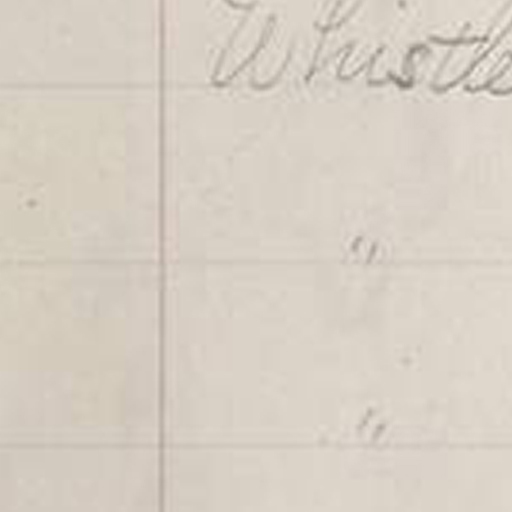 Whistle
"
"